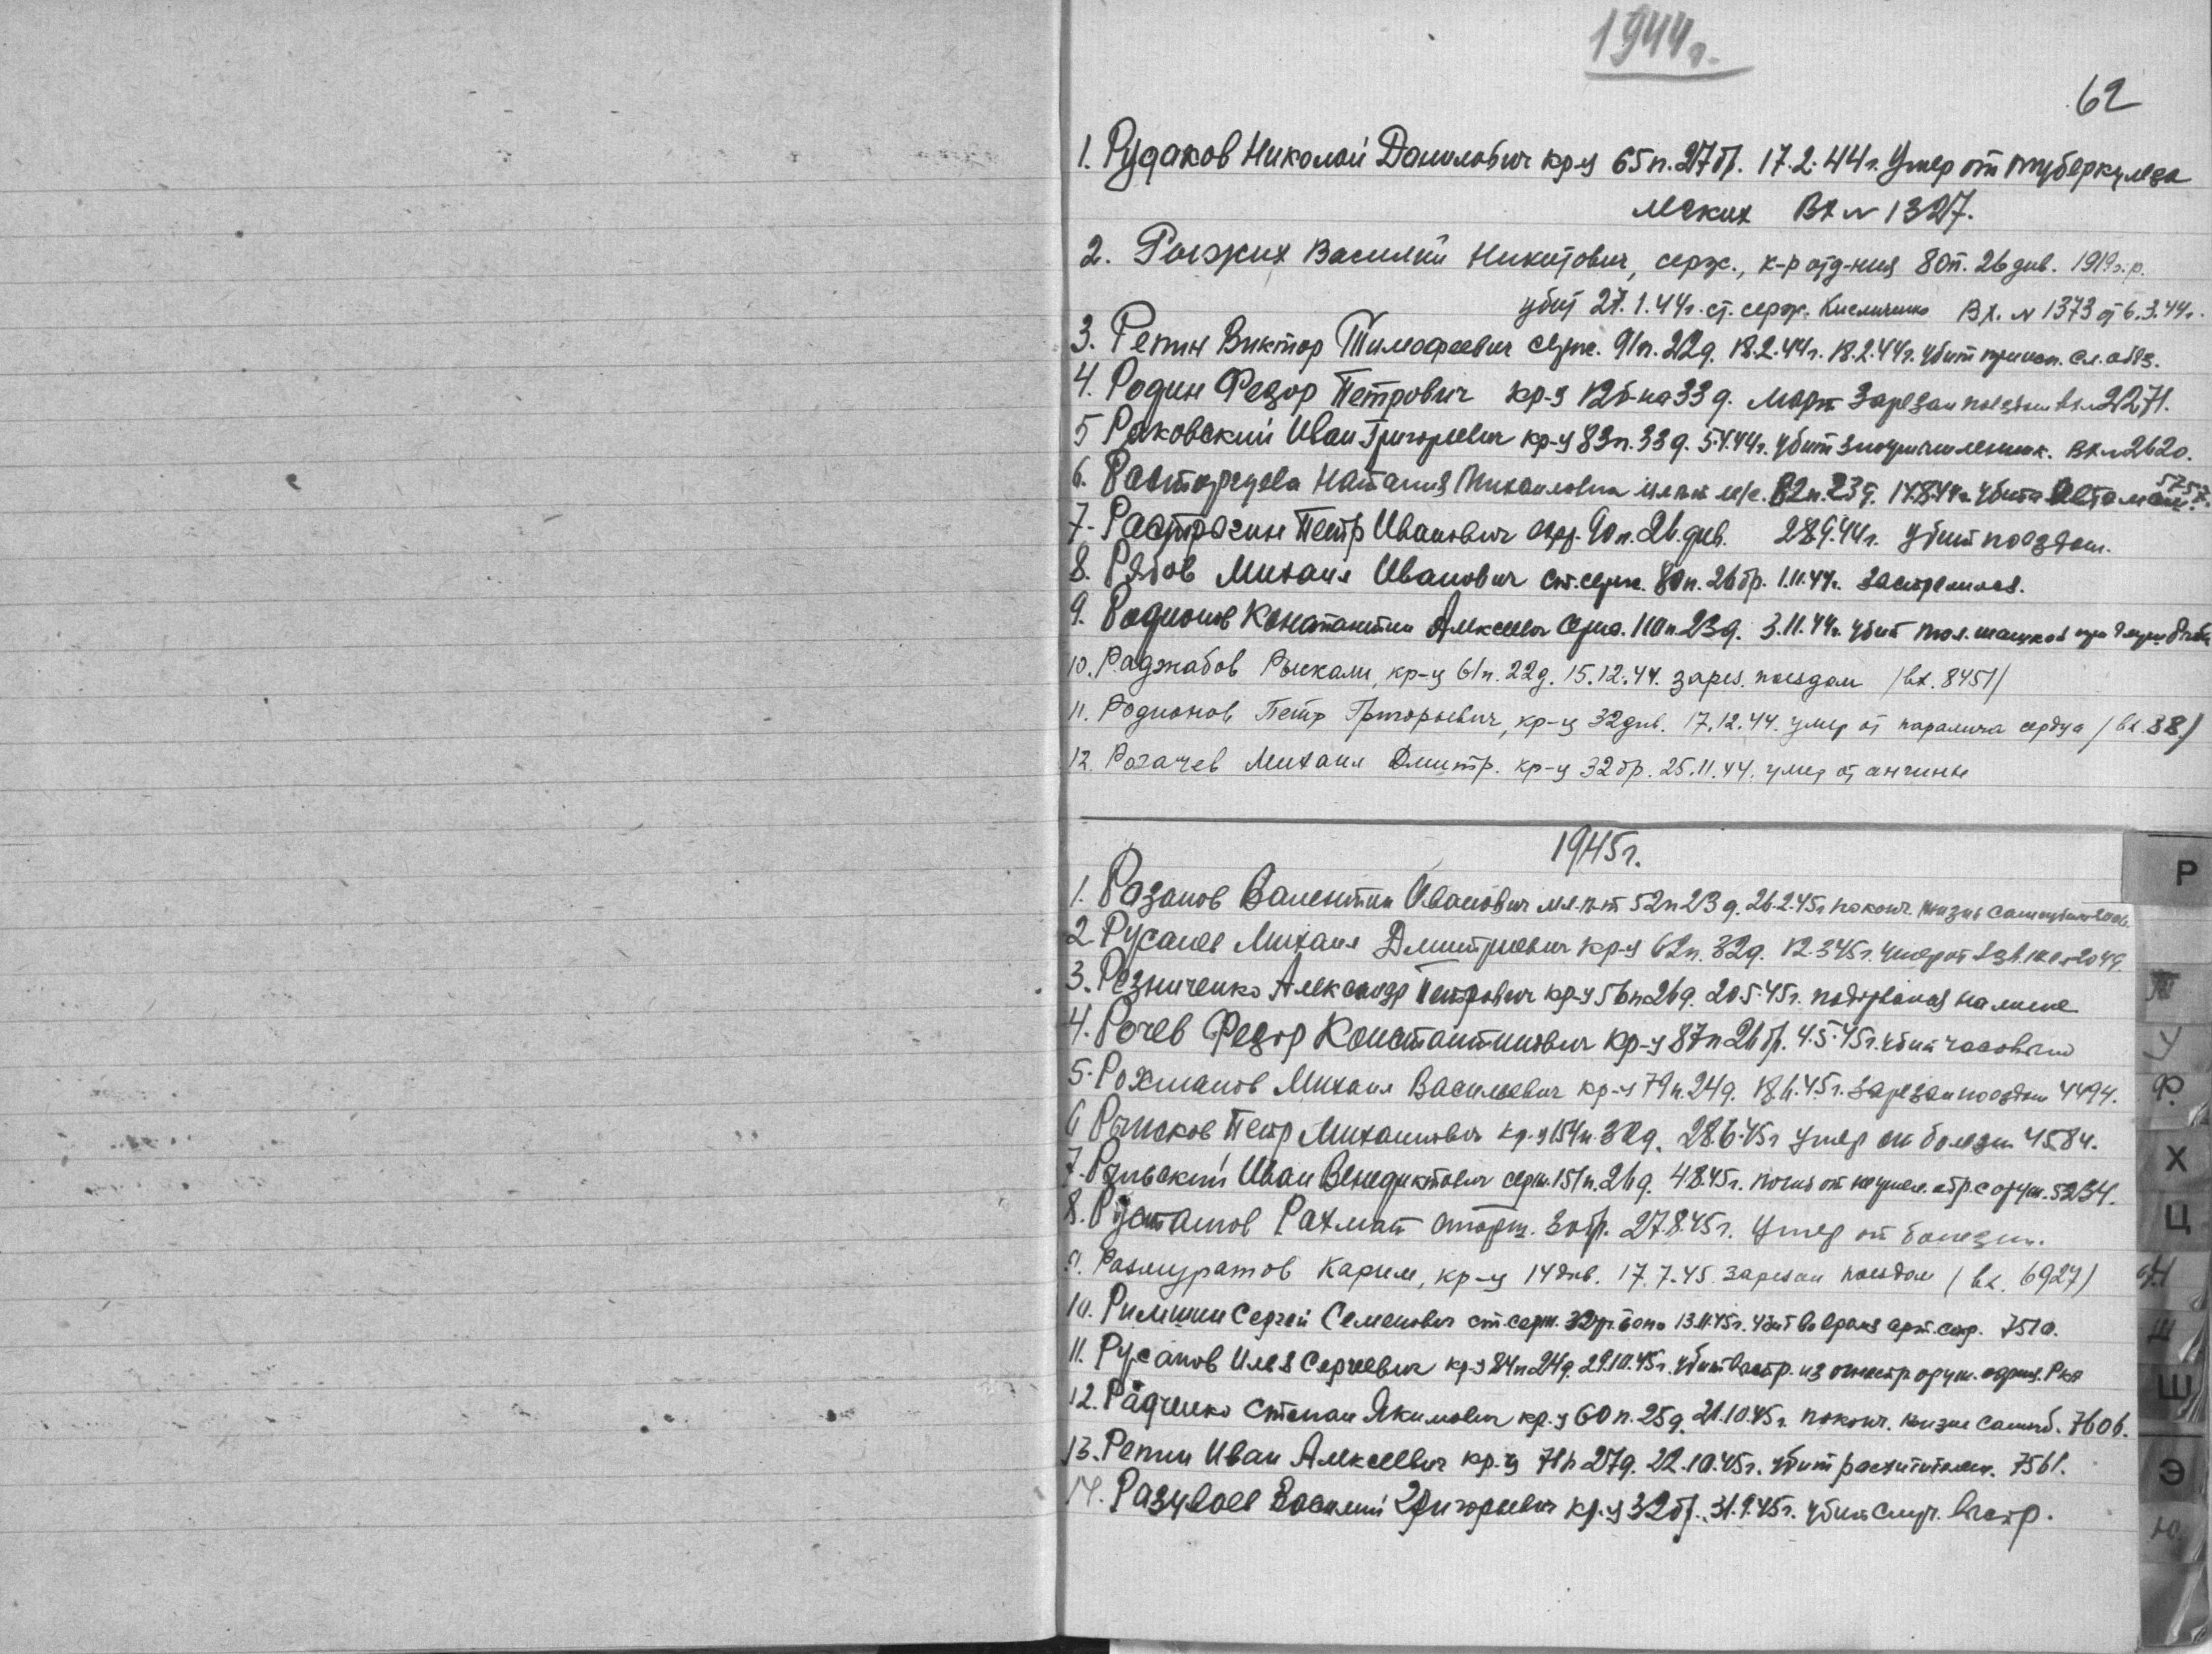 1944г.
62
1. Рудаков Николай Данилович кр-ц 65п. 27бр. 17.2.44г. Умер от туберкулеза
легких Вх № 1327.
2. Рыжих Василий Никитович, серж., к-р отд-ния 80п. 26 див. 1919г.р.
убит 27.1.44г. ст. серж. Кисличенко Вх. № 1373 от 6.3.44г.
3. Репин Виктор Тимофеевич серж. 91п. 22д. 18.2.44г. 18.2.44г. убит при исп. сл. обяз.
4. Родин Федор Петрович кр-ц 12б-на 33д. март Зарезан поездом вх № 2271.
5 Раковский Иван Григорьевич кр-ц 83п. 33д. 5.4.44г. убит злоумышленник. вх № 2620.
6. Расторгуева Наталия Михайловна мл. л-т м/с. 82п. 23д. 14.8.44г. убита автомаш. 5757.
7. Растрогин Петр Иванович 90п. 26 див. 28.9.44г. убит поездом.
8. Рябов Михаил Иванович ст. серж. 80п. 26бр. 1.11.44г. застрелился.
9. Родионов Константин Алексеевич серж. 110п. 23д. 3.11.44г. убит
10. Раджабов кр-ц 61п. 22д. 15.12.44. зарез. поездом /вх. 8451/
11. Родионов Петр Григорьевич, кр-ц 32див. 17.12.44. умер от паралича сердца /вх. 38/
12. Рогачев Михаил Дмитр. кр-ц 32бр. 25.11.44. умер от ангины
1945г.
1. Разанов Валентин Иванович мл. л-т 52п 23д. 26.2.45г. поконч. жизнь самоубийс.
2. Русалев Михаил Дмитриевич кр-ц 62п. 32д. 12.3.45г. умер от 2049.
3. Резниченко Александр Петрович кр-ц 56п 26д. 20.5.45г. подорвался на мине
4. Рочев Федор Константинович кр-ц 87п 26бр. 4.5.45г. убит часовым
5. Рохманов Михаил Васильевич кр-ц 79п. 24д. 18.6.45г. Зарезан поездом 4494.
6 Рыжков Петр Михайлович кр-ц 154п. 32д. 28.6.45г умер от болезн. 4584.
7. Рыльский Иван Венедиктович серж. 151п. 26д. 4.8.45г. погиб от неумел. обр. с оруж. 5234.
8. Рустамов Рахмат 27.8.45г. Умер от болезни.
9. Размуратов Карим, кр-ц 14див. 17.7.45. зарезан поездом /вх. 6927/
10. Римшин Сергей Семенович ст. серж. 13.11.45г. убит во время арт. стр. 7510.
11. Русанов Илья Сергеевич кр-ц 84п 24д. 29.10.45г. убит выстр. из огнестр оруж.
12. Радченко Степан Якимович кр-ц 60п. 25д. 21.10.45г. поконч. жизнь самоуб. 7606.
13. Репин Иван Алексеевич кр-ц 71п 27д. 22.10.45г. убит расхитителем. 7561.
14. Разуваев Василий Григорьевич кр-ц 32бр. 31.9.45г. убит случ. выстр.
Р
Т
У
Ф
Х
Ц
Ч
Ш
Щ
Э
Ю